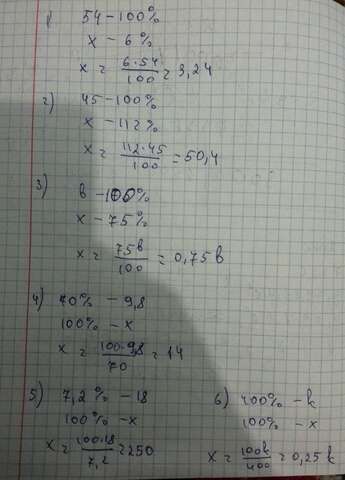 1) 54-100%
x - 6%
x = 6·54/100 = 3,24
2) 45-100%
x - 112%
x = 112·45/100 = 50,4
3) b - 100%
x - 75%
x = 75b/100 = 0,75b
4) 70% - 9,8
100% - x
x = 100·9,8/70 = 14
5) 7,2% - 18
100% - x
x = 100·18/7,2 = 250
6) 400% - k
100% - x
x = 100k/400 = 0,25k